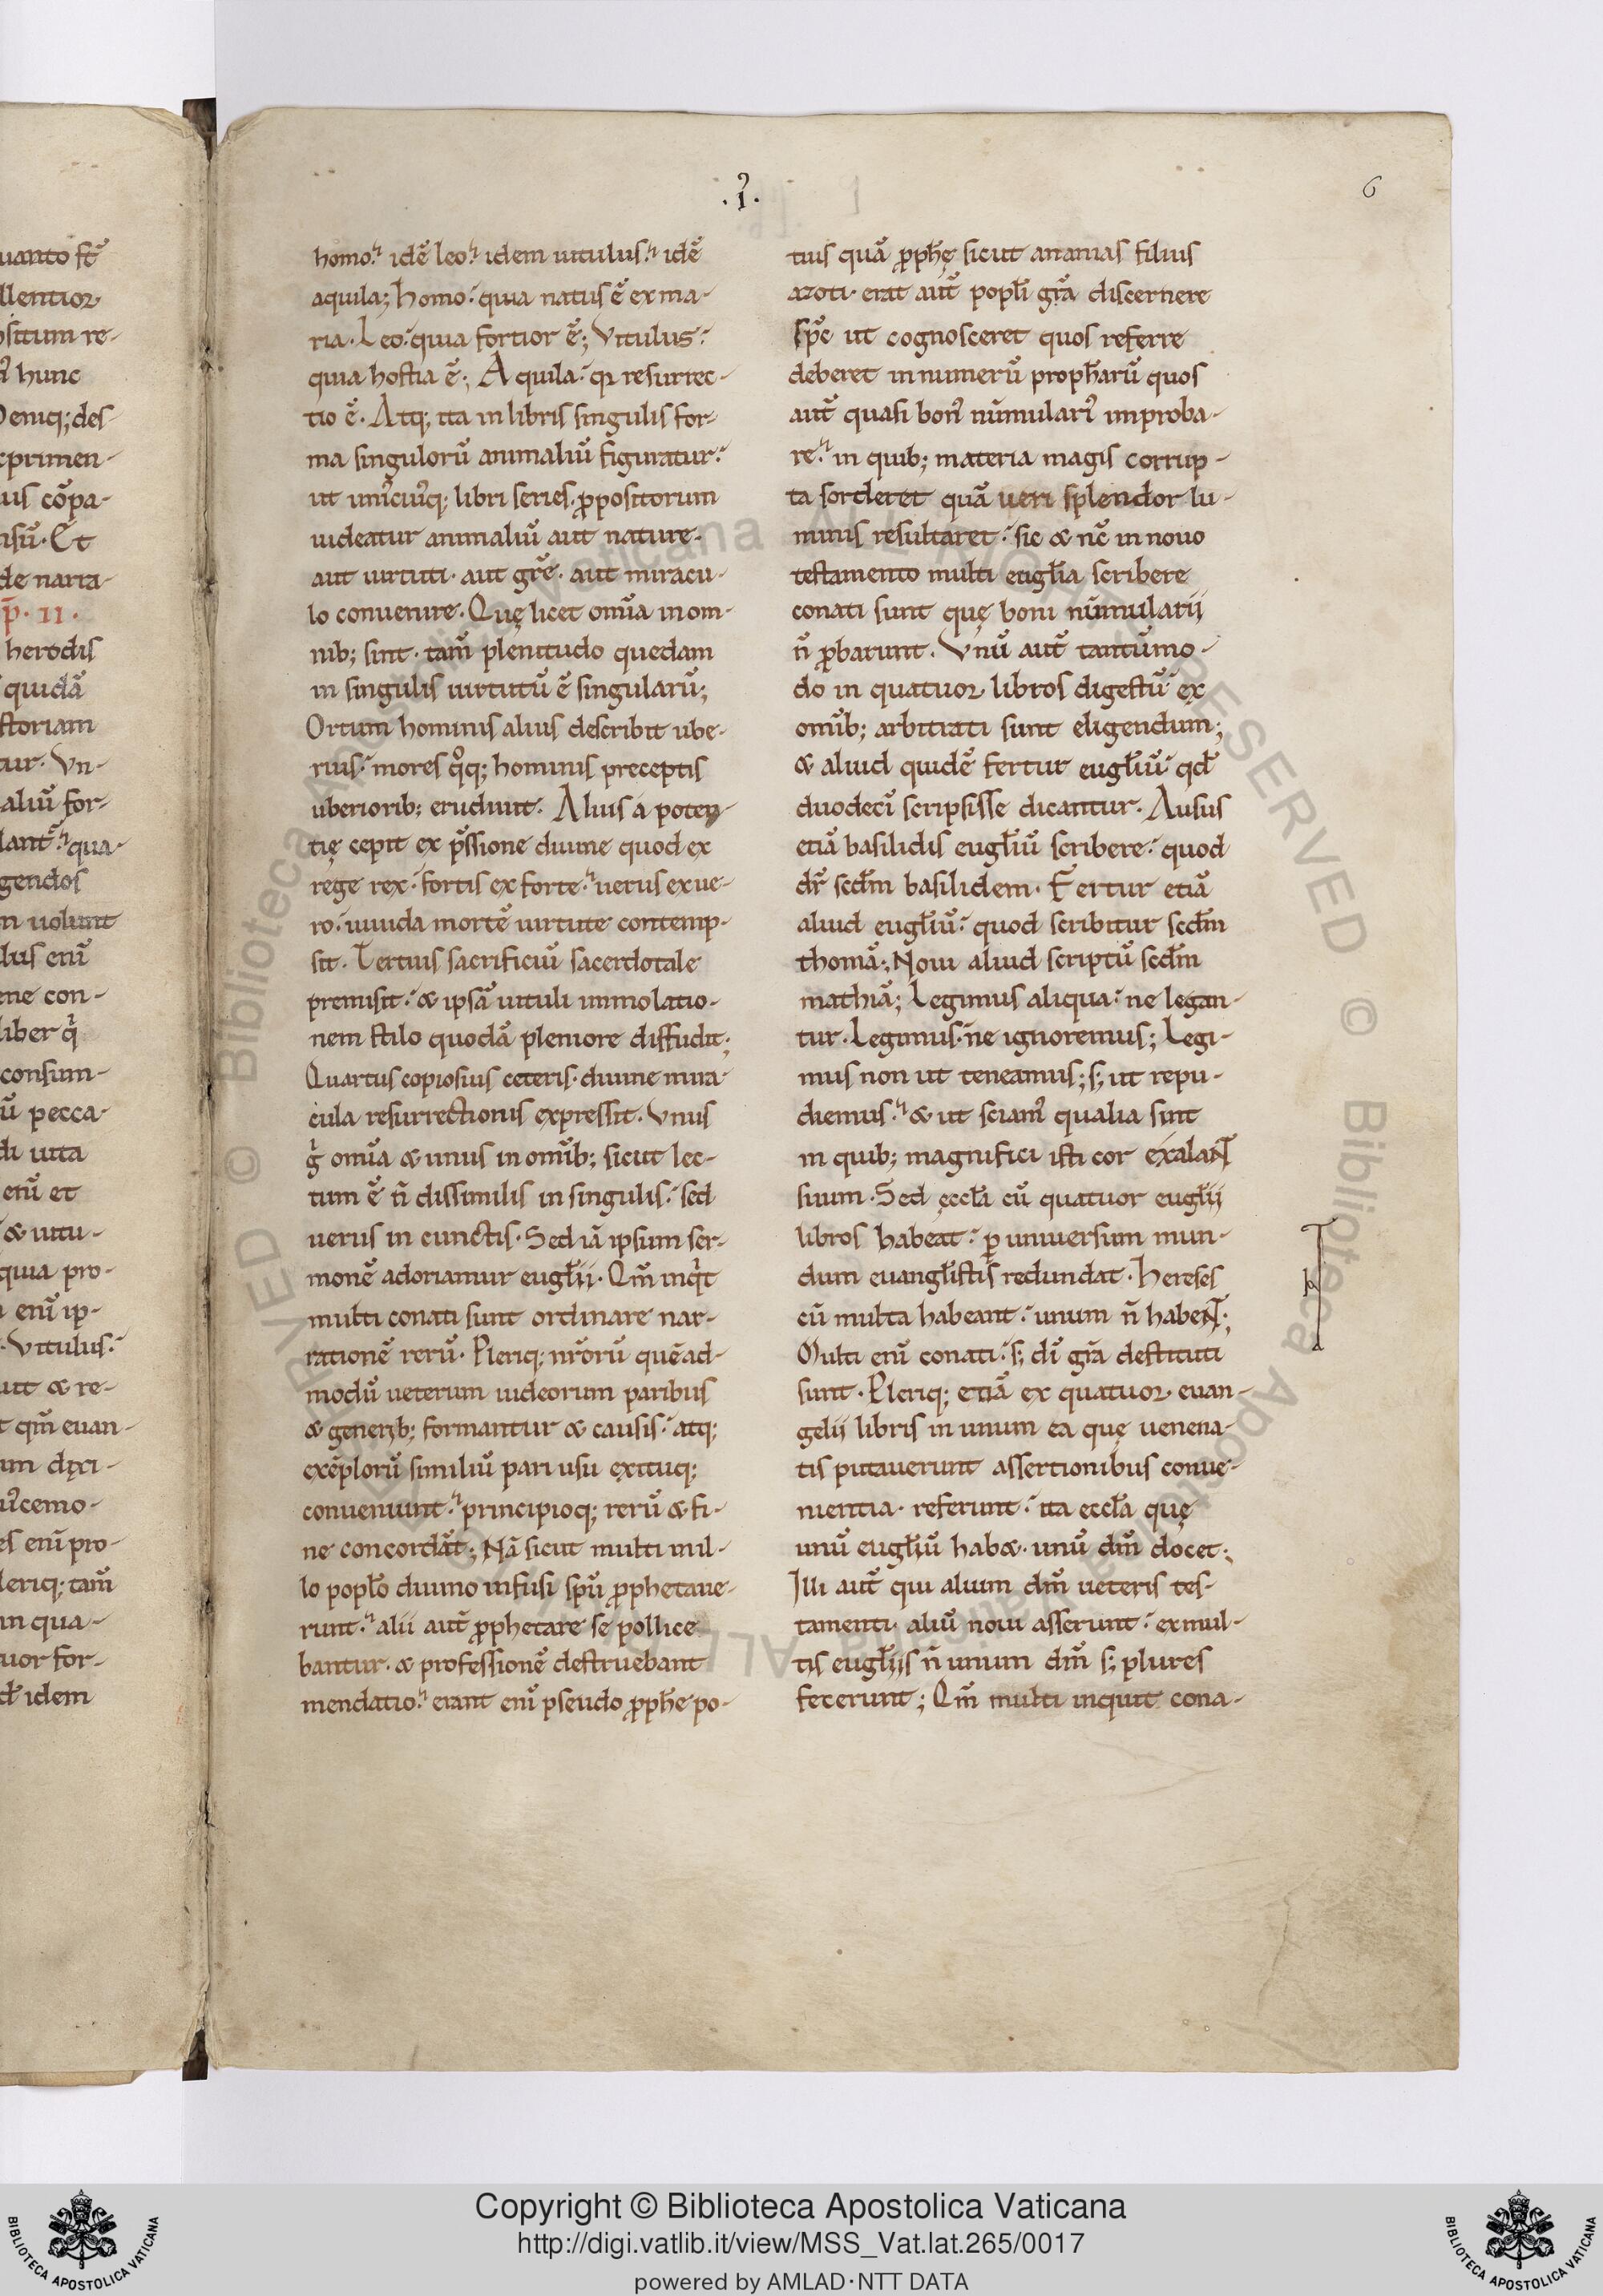 .I.
6
uanto st̄
llentior
ositum re-
hunc
Deniq; des-
cprimen-
uis cōpa-
nsū. Et
de narra-
p̄. II.
herodis
quidā
storiam
tur. Vn-
aliū for-
lant. qua-
gendos
m uolunt
bus enī
ene con-
liber q
consum-
ū pecca-
di uita
enī et
& uitu-
quia pro-
enī ip-
Vitulus.
uit & re-
t qm̄ euan-
um dixi-
cemo-
es enī pro-
leriq; tam̄
in qua-
uor for-
idem
homo. idē leo. idem uitulus. idē
aquila; homo. quia natus ē ex ma-
ria. Leo. quia fortior ē; Vitulus.
quia hostia ē; Aquila. qr resurrec-
tio ē. Atq; ita in libris singulis for-
ma singulorū animaliū figuratur.
ut unicuiq; libri series. ꝓpositorum
uideatur animaliū aut nature.
aut uirtuti. aut grē. aut miracu-
lo conuenire. Quę licet om̄ia in om-
nib; sint. tam̄ plenitudo quedam
in singulis uirtutū ē singularū;
Ortum hominis alius describit ube-
rius. mores qoq; hominis preceptis
uberiorib; erudiuit. Alius a poten-
tię cepit ex p̄ssione diuine quod ex
rege rex. fortis ex forte. uerus ex ue-
ro. uiuida mortē uirtute contemp-
sit. Tertius sacrificiū sacerdotale
premisit. & ipsā uituli immolatio-
nem stilo quodā pleniore diffudit;
Quartus copiosius ceteris. diuine mira-
cula resurrectionis expressit. Vnus
g̍ om̄ia & unus in om̄ib; sicut lec-
tum ē n̄ dissimilis in singulis. sed
uerus in cunctis. Sed iā ipsum ser-
monē adoriamur eugl̄ii. Qm̄ inq̍t
multi conati sunt ordinare nar-
rationē rerū. Pleriq; nr̄orū quēad-
modū ueterum iudeorum paribus
& generib; formantur & causis. atq;
exēplorū similiū pari usu exituq;
conueniunt. principioq; rerū & fi-
ne concordāt; Nā sicut multi mil-
lo popl̄o diuino infusi sp̄u ꝓphetaue-
runt. alii aut̄ ꝓphetare se pollice
bantur. & professionē destruebant
mendatio. erant enī pseudo ꝓph̄e po-
tius quā ꝓph̄ę sicut ananias filius
azoti. erat aut̄ popl̄i gr̄a discernere
sp̄c ut cognosceret quos referre
deberet in numerū proph̄arū quos
aut̄ quasi bon᾽ nūmulari᾽ improba-
re. in quib; materia magis corrup-
ta sorderet quā ueri splendor lu-
minis resultaret. sic & nc̄ in nouo
testamento multi eugl̄ia scribere
conati sunt quę boni nūmularii
n̄ ꝓbarunt. Vnū aut̄ tantūmo-
do in quatuor libros digestū ex
om̄ib; arbitrati sunt eligendum;
& aliud quidē fertur eugl̄iū. qd̄
duodecī scripsisse dicantur. Ausus
etiā basilidis eugl̄iū scribere. quod
dr̄ scdm̄ basilidem. Fertur etiā
aliud eugl̄iū. quod scribitur scdm̄
thomā; Noui aliud scriptū scdm̄
mathiā; Legimus aliqua. ne legan-
tur. Legimus. ne ignoremus; Legi-
mus non ut teneamus; s; ut repu-
diemus. & ut sciam᾽ qualia sint
in quib; magnifici isti cor exalant
suum. Sed ęccl̄a cū quatuor eugl̄ii
libros habeat. ꝑ uniuersum mun-
dum euangl̄istis redundat. hereses
cū multa habeant. unum n̄ habent;
Multi enī conati. s; dī gr̄a destituti
sunt. Pleriq; etiā ex quatuor. euan-
gelii libris in unum ea quę uenena-
tis putauerunt assertionibus conue-
nientia. referunt. ita eccl̄a quę
unū eugl̄iū hab&. unū dm̄ docet;
Illi aut̄ qui alium dm̄ ueteris tes-
tamenti. aliū noui asserunt. ex mul-
tis eugl̄iis n̄ unum dm̄ s; plures
fecerunt; Qm̄ multi inquit cona-
Copyright © Biblioteca Apostolica Vaticana
http://digi.vatlib.it/view/MSS_Vat.lat.265/0017
powered by AMLAD·NTT DATA
BIBLIOTECA APOSTOLICA VATICANA
BIBLIOTECA APOSTOLICA VATICANA